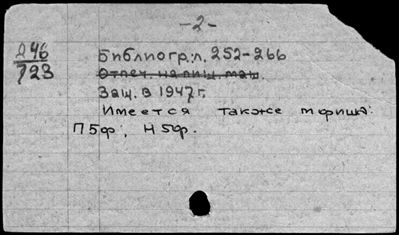 -2-
Д46
723
Библиогр.: л. 252-266
Отпеч. на пиш. маш.
Защ. в 1947 г.
Имеется также т фиша:
П5ф; Н5ф.